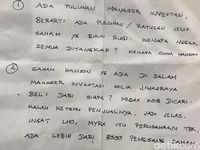 ① ADA PULUHAN MANAGER INVESTASI,
BERARTI ADA PULUHAN / RATUSAN JENIS
SAHAM YG BIKIN RUGI. KENAPA NGGAK
SEMUA DITANGKAP? KENAPA CUMA HANSON
② SAHAM HANSON YG ADA DI DALAM
MANAGER INVESTASI MILIK JIWASRAYA
• BELI DARI SIAPA? MBOK YA DICARI
KALAU KETEMU PENJUALNYA, JADI JELAS.
INGAT LHO, MYRX ITU PERUSAHAAN TBK.
ADA LEBIH DARI 8000 PEMEGANG SAHAM
detikcom